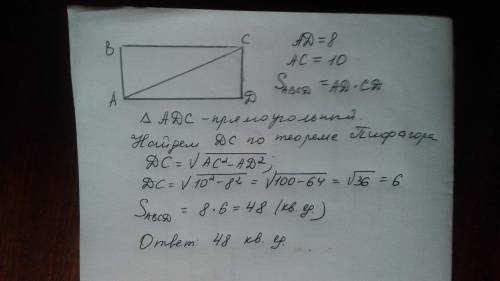 B C
A D
AD = 8
AC = 10
S_ABCD = AD · CD
Δ ADC - прямоугольный.
Найдем DC по теореме Пифагора
DC = √(AC² - AD²) ;
DC = √(10² - 8²) = √(100 - 64) = √36 = 6
S_ABCD = 8 · 6 = 48 (кв. ед.)
Ответ: 48 кв. ед.